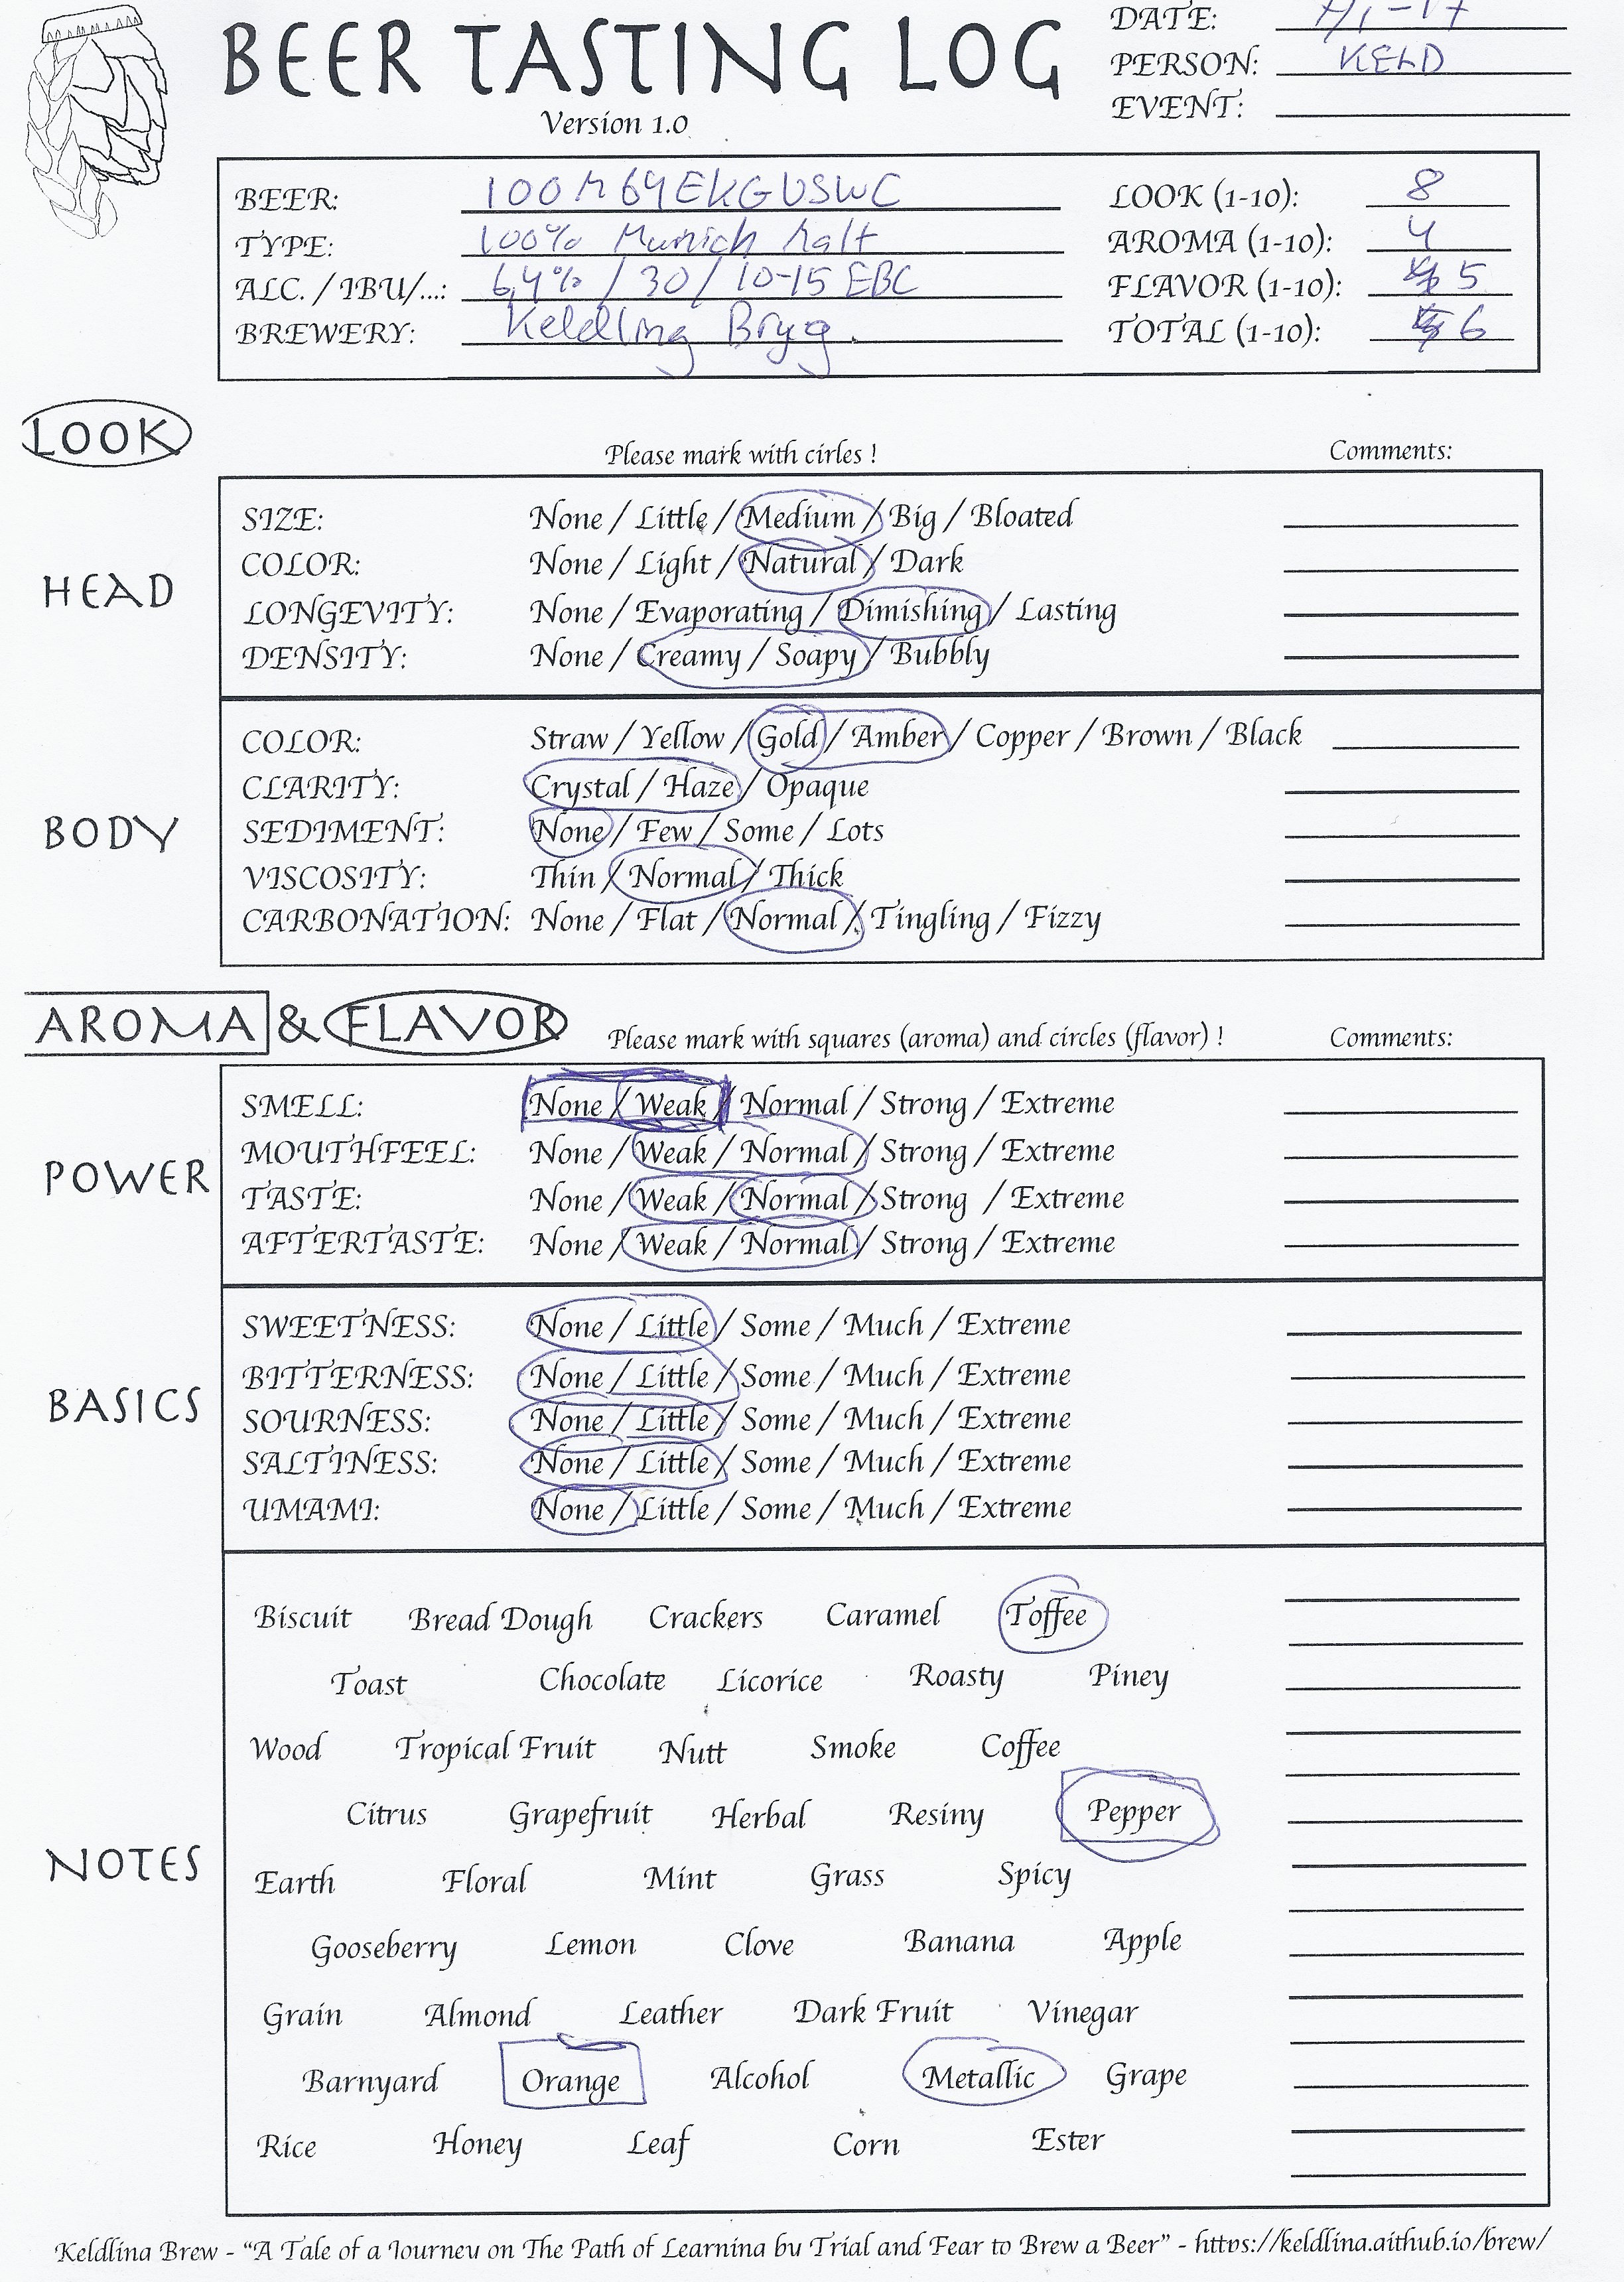 BEER TASTING LOG
Version 1.0
DATE:
PERSON: KELD
EVENT:
BEER: 100M64EKGUSWC
TYPE: 100% Munich Malt
ALC. / IBU/...: 6,4% / 30 / 10-15 EBC
BREWERY: Keldling Bryg.
LOOK (1-10): 8
AROMA (1-10): 4
FLAVOR (1-10): 5
TOTAL (1-10): 6
LOOK
Please mark with cirles !
Comments:
HEAD
SIZE: None / Little / Medium / Big / Bloated
COLOR: None / Light / Natural / Dark
LONGEVITY: None / Evaporating / Dimishing / Lasting
DENSITY: None / Creamy / Soapy / Bubbly
BODY
COLOR: Straw / Yellow / Gold / Amber / Copper / Brown / Black
CLARITY: Crystal / Haze / Opaque
SEDIMENT: None / Few / Some / Lots
VISCOSITY: Thin / Normal / Thick
CARBONATION: None / Flat / Normal / Tingling / Fizzy
AROMA & FLAVOR
Please mark with squares (aroma) and circles (flavor) !
Comments:
POWER
SMELL: None / Weak / Normal / Strong / Extreme
MOUTHFEEL: None / Weak / Normal / Strong / Extreme
TASTE: None / Weak / Normal / Strong / Extreme
AFTERTASTE: None / Weak / Normal / Strong / Extreme
BASICS
SWEETNESS: None / Little / Some / Much / Extreme
BITTERNESS: None / Little / Some / Much / Extreme
SOURNESS: None / Little / Some / Much / Extreme
SALTINESS: None / Little / Some / Much / Extreme
UMAMI: None / Little / Some / Much / Extreme
NOTES
Biscuit Bread Dough Crackers Caramel Toffee
Toast Chocolate Licorice Roasty Piney
Wood Tropical Fruit Nutt Smoke Coffee
Citrus Grapefruit Herbal Resiny Pepper
Earth Floral Mint Grass Spicy
Gooseberry Lemon Clove Banana Apple
Grain Almond Leather Dark Fruit Vinegar
Barnyard Orange Alcohol Metallic Grape
Rice Honey Leaf Corn Ester
Keldling Brew - "A Tale of a Journey on The Path of Learning by Trial and Fear to Brew a Beer" - https://keldling.github.io/brew/